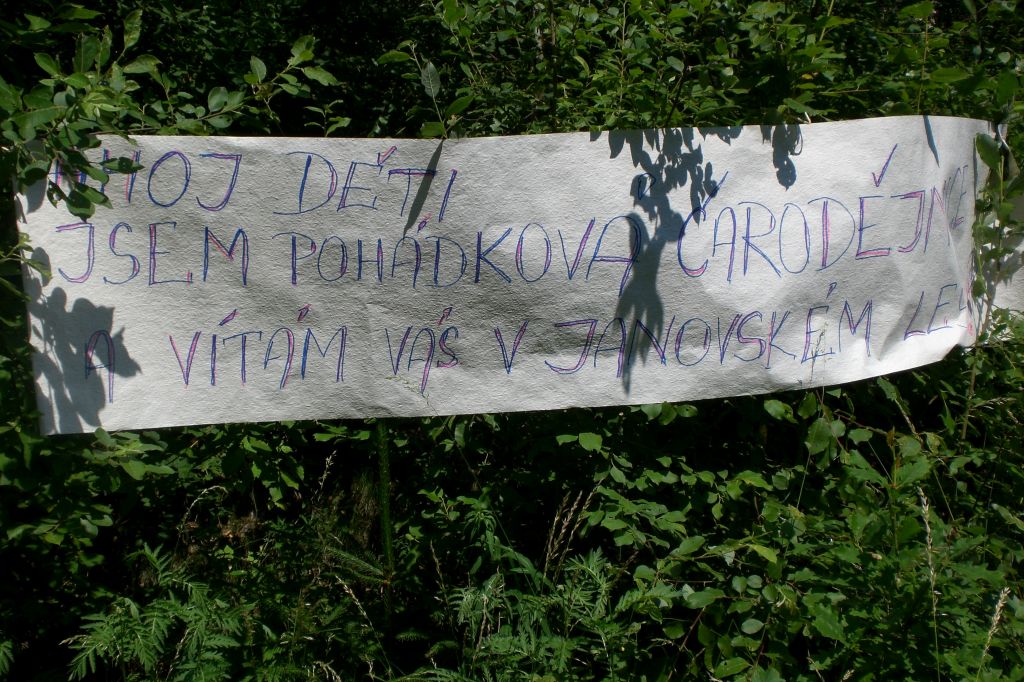 AHOJ DĚTI
JSEM POHÁDKOVÁ ČARODĚJNICE
A VÍTÁM VÁS V JANOVSKÉM LESE